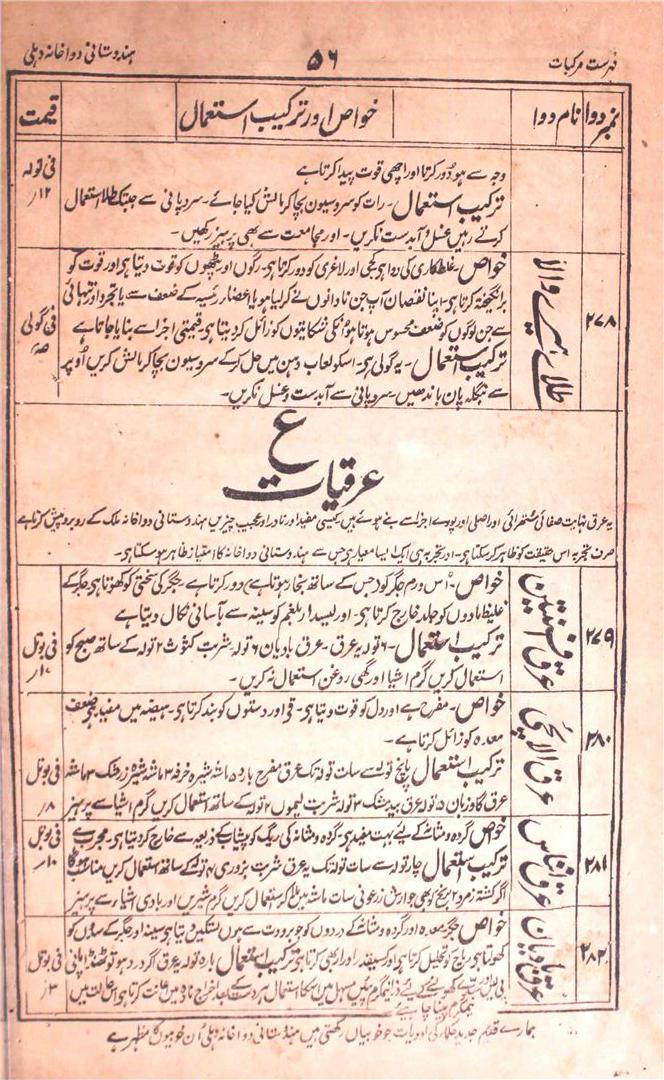 فہرست مرکبات ۵۶ ہندوستانی دواخانہ دہلی
نمبر دوا نام دوا خواص اور ترکیب استعمال قیمت
وجہ سے ہو دور کرتا اور اچھی قوت پیدا کرتا ہے
ترکیب استعمال۔ رات کو سر و سیون بچا کر مالش کیا جائے۔ سرد پانی سے جبتک طلا استعمال
کرتے رہیں غسل و آبدست نکریں۔ اور مجامعت سے بھی پرہیز رکھیں۔
فی تولہ
۱۲؍
۲۷۸
طلائے ہیرے والا
خواص۔ غلط کاری کی دوا ہی کجی اور لاغری کو دور کرتا ہی۔ رگوں اور پٹھوں کو قوت دیتا ہی اور قوت کو
برانگیختہ کرتا ہی۔ اپنا نقصان آپ جن نادانوں نے کر لیا ہو یا اعضاء رئیسہ کے ضعف سے یا تجرد اور تنہائی
سے جن لوگوں کو ضعف محسوس ہوتا ہو انکی شکایتوں کو زائل کر دیتا ہی۔ قیمتی اجزا سے بنایا جاتا ہے
ترکیب استعمال۔ یہ گولی ہی۔ اسکو لعاب دہن میں حل کر کے سر و سیون بچا کر مالش کریں اُوپر
سے بنگلہ پان باندھیں۔ سرد پانی سے آبدست و غسل نکریں۔
فی گولی
ع
عرقیات
یہ عرق نہایت صفائی ستھرائی اور اصلی اور پورے اجزا سے بنے ہوئے ہیں کیسی مفید اور نادر اور عجیب چیزیں ہندوستانی دواخانہ ملک کے روبرو پیش کرتا ہے
صرف تجربہ اس حقیقت کو ظاہر کر سکتا ہی۔ اور تجربہ ہی ایک ایسا معیار ہی جس سے ہندوستانی دواخانہ کا امتیاز ظاہر ہو سکتا ہی۔
۲۷۹
عرق افسنتین
خواص۔ اس ورم جگر کو (جس کے ساتھ بخار ہوتا ہے) دور کرتا ہے۔ جگر کی سختی کو کھوتا ہی جگر کے
غلیظ مادوں کو جلد خارج کرتا ہی۔ اور لیسدار بلغم کو سینہ سے بآسانی نکال دیتا ہے
ترکیب استعمال۔ ۶ تولہ یہ عرق۔ عرق بادیان ۶ تولہ شربت کثوث ۲ تولہ کے ساتھ صبح کو
استعمال کریں گرم اشیا اور گھی روغن استعمال نہ کریں۔
فی بوتل
۱۰؍
۲۸۰
عرق الائچی
خواص۔ مفرح ہے اور دل کو قوت دیتا ہی۔ قے اور دستوں کو بند کرتا ہی۔ ہیضہ میں مفید ہی ضعف
معدہ کو زائل کرتا ہے۔
ترکیب استعمال پانچ تولہ سے سات تولہ تک عرق مفرح بارد ۵ ماشہ شیرہ خرفہ ۳ ماشہ شیرہ زرشک ۳ ماشہ
عرق گاوزبان ۵ تولہ عرق بیدمشک ۳ تولہ شربت لیموں ۲ تولہ کے ساتھ استعمال کریں گرم اشیا سے پرہیز
فی بوتل
۸؍
۲۸۱
عرق انناس
خواص گردہ و مثانہ کے لیے بہت مفید ہی گردہ و مثانہ کی ریگ کو پیشاب کے ذریعہ سے خارج کر دیتا ہی۔ مجرب ہے
ترکیب استعمال چار تولہ سے سات تولہ تک یہ عرق شربت بزوری ۲ تولہ کے ساتھ استعمال کریں مناسب ہوگا
اگر کشتہ زمرد ۲ برنج کو بھی جوارش زرعونی سات ماشہ میں ملا کر استعمال کریں گرم شیریں اور بادی اشیاء سے پرہیز
فی بوتل
۱۰؍
۲۸۲
عرق بادیان
خواص جگر معدہ اور گردہ و مثانہ کے دردوں کو جو برودت سے ہوں تسکین دیتا ہی سینہ اور جگر کے سدوں کو
کھولتا ہی ریاح کو تحلیل کرتا ہی اور کسیقدر ادرار بھی کرتا ہی ترکیب استعمال بارہ تولہ یہ عرق اگر درد ہو تو ٹھنڈا پانی
نیمگرم پینا چاہئے
فی بوتل
۳؍
ہمارے قدیم جدید حکما کی ادویات جو خوبیاں رکھتی ہیں ہندوستانی دواخانہ دہلی اُن خوبیوں کا مظہر ہے